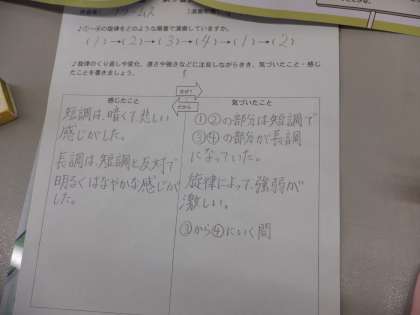 ♪①~④の旋律をどのような順番で演奏していますか。
(1)→(2)→(3)→(4)→(1)→(2)
♪旋律のくり返しや変化、速さや強さなどに注目しながらきき、気づいたこと・感じ
たことを書きましょう。
なぜ?
だから
感じたこと
短調は、暗くて悲しい
感じがした。
長調は、短調と反対で
明るくはなやかな感じがし
た。
気づいたこと
①②の部分は短調で
③④の部分が長調
になっていた。
旋律によって、強弱が
激しい。
③から④にいく間